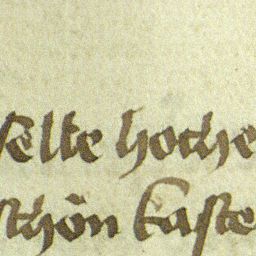 selbe hoche
schön kaste